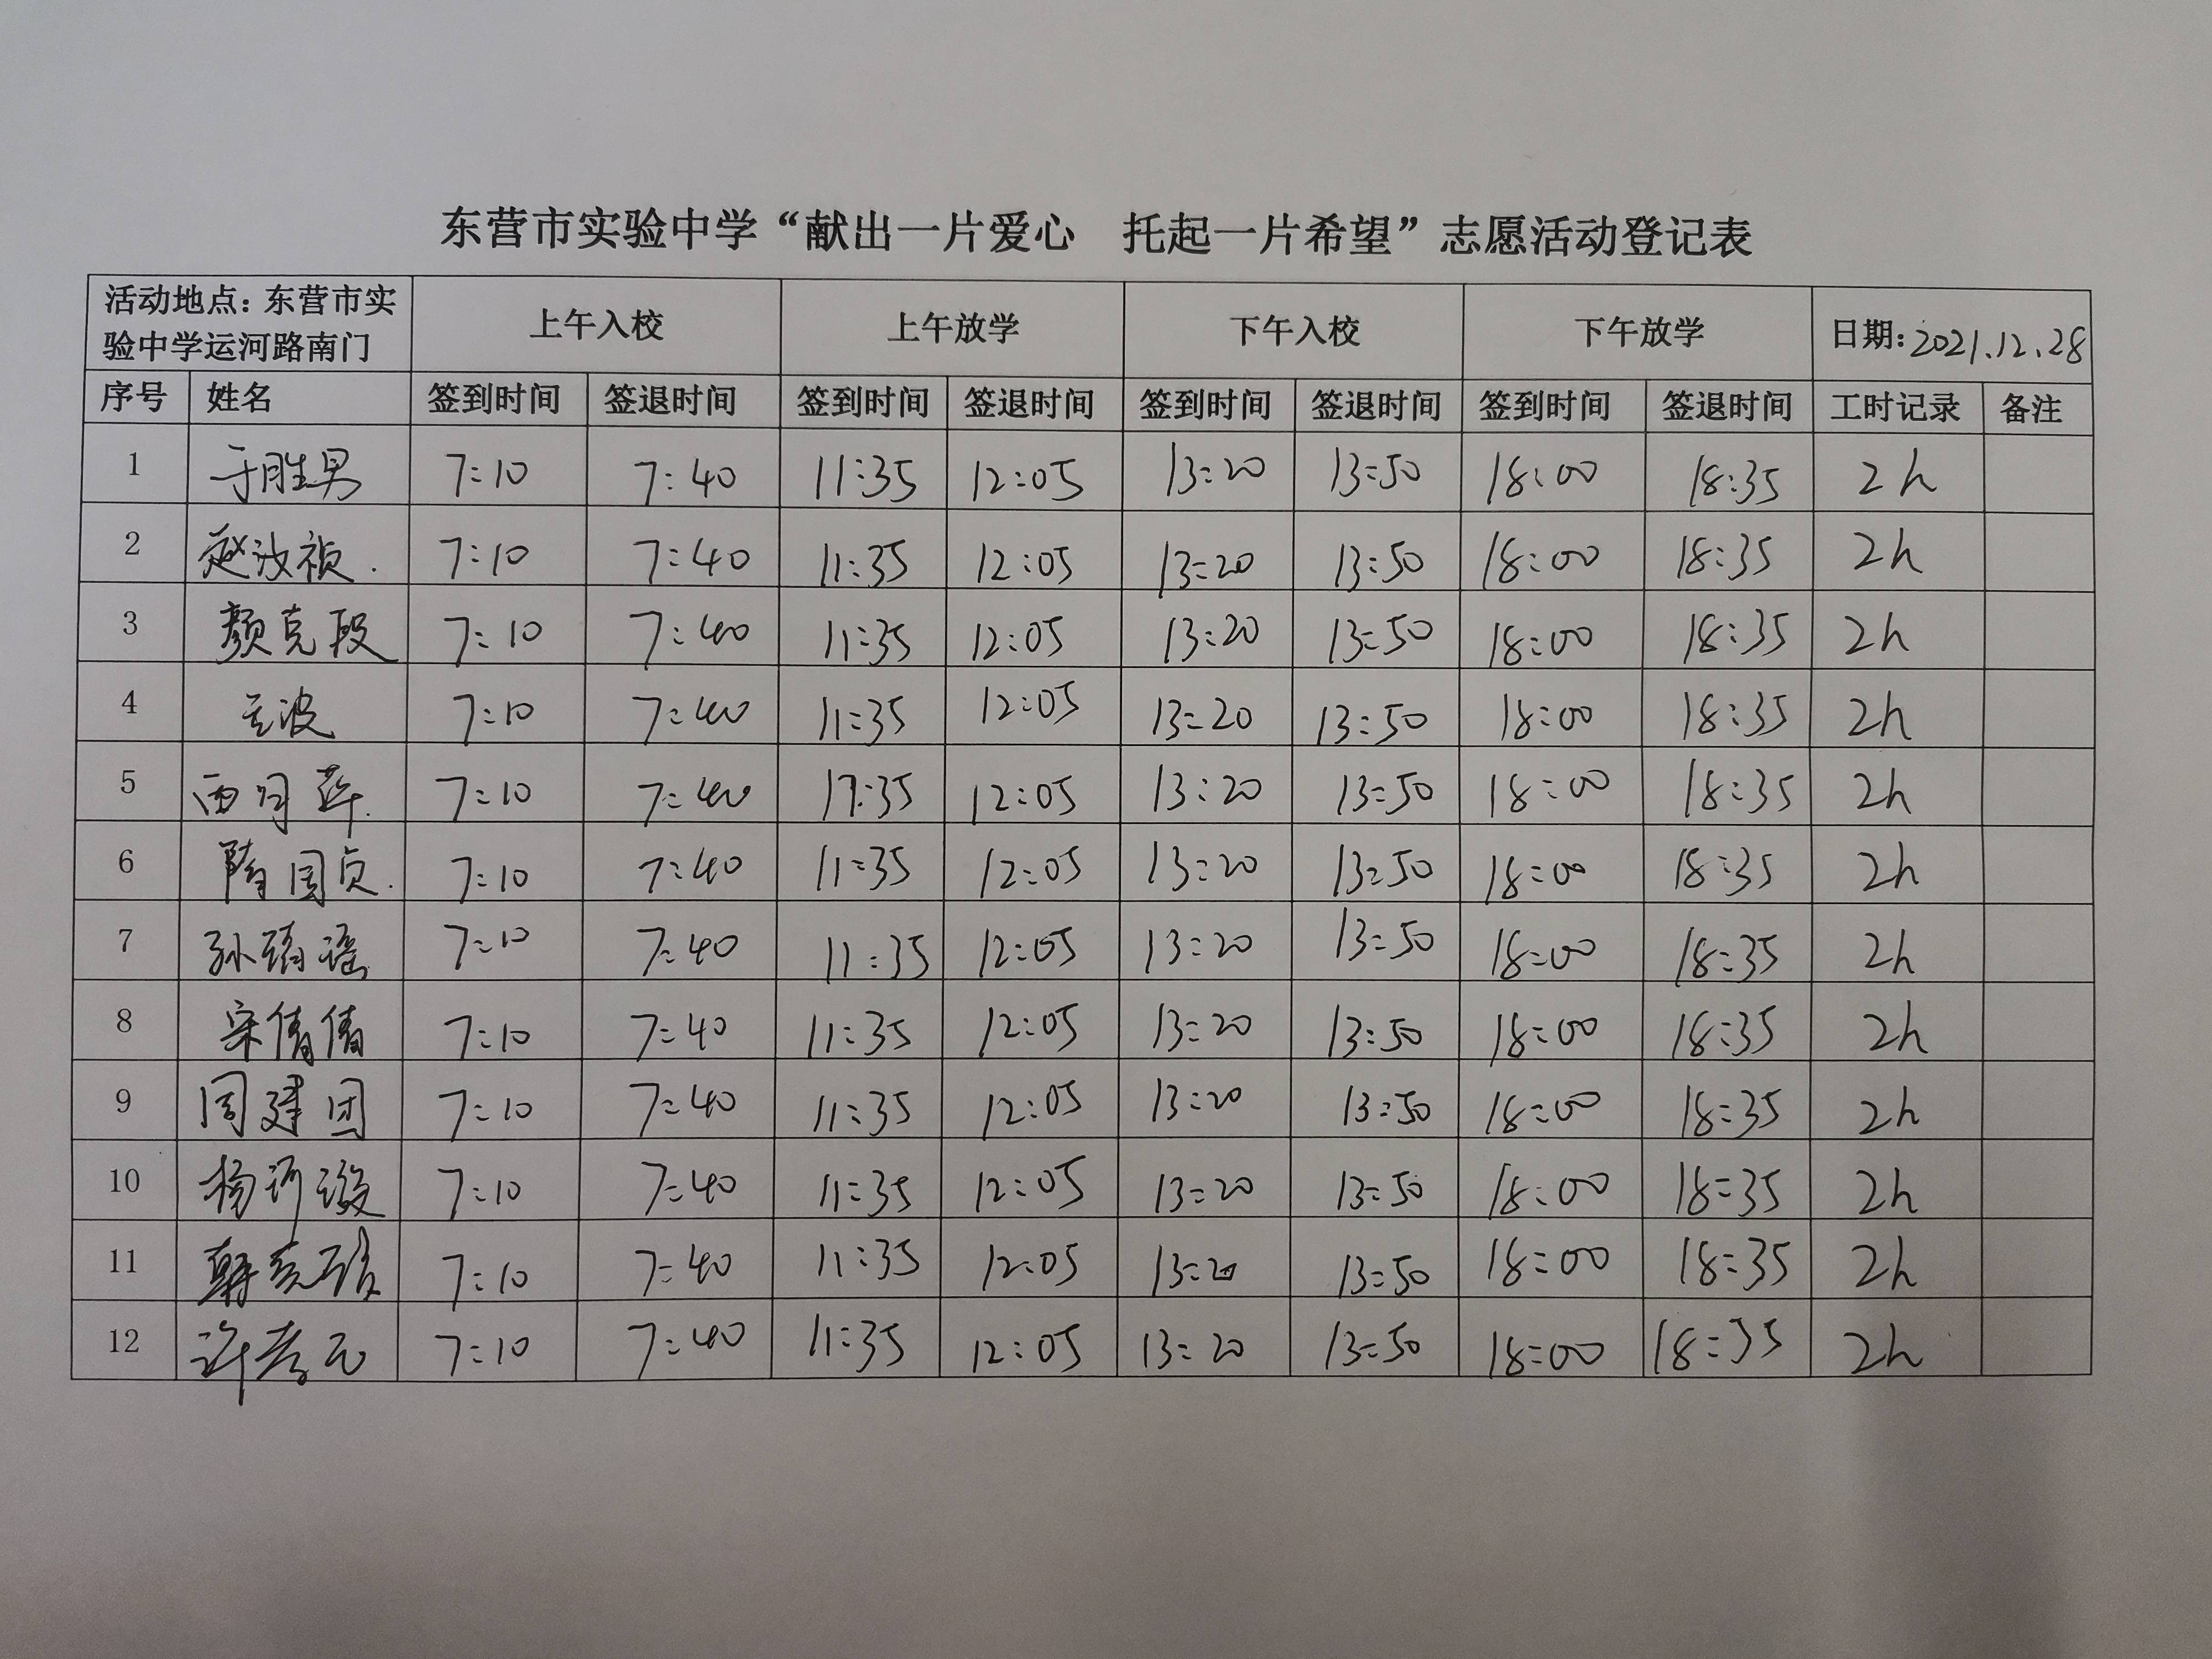 东营市实验中学“献出一片爱心 托起一片希望”志愿活动登记表
活动地点：东营市实验中学运河路南门 上午入校 上午放学 下午入校 下午放学 日期：2021.12.28
序号 姓名 签到时间 签退时间 签到时间 签退时间 签到时间 签退时间 签到时间 签退时间 工时记录 备注
1 于胜男 7:10 7:40 11:35 12:05 13:20 13:50 18:00 18:35 2h
2 7:10 7:40 11:35 12:05 13:20 13:50 18:00 18:35 2h
3 颜克段 7:10 7:40 11:35 12:05 13:20 13:50 18:00 18:35 2h
4 波 7:10 7:40 11:35 12:05 13:20 13:50 18:00 18:35 2h
5 7:10 7:40 12:05 13:20 13:50 18:00 18:35 2h
6 隋国贞 7:10 7:40 11:35 12:05 13:20 13:50 18:00 18:35 2h
7 孙 瑶 7:10 7:40 11:35 12:05 13:20 13:50 18:00 18:35 2h
8 宋倩倩 7:10 7:40 11:35 12:05 13:20 13:50 18:00 18:35 2h
9 周建团 7:10 7:40 11:35 12:05 13:20 13:50 18:00 18:35 2h
10 杨 璇 7:10 7:40 11:35 12:05 13:20 13:50 18:00 18:35 2h
11 7:10 7:40 11:35 12:05 13:20 13:50 18:00 18:35 2h
12 许孝元 7:10 7:40 11:35 12:05 13:20 13:50 18:00 18:35 2h